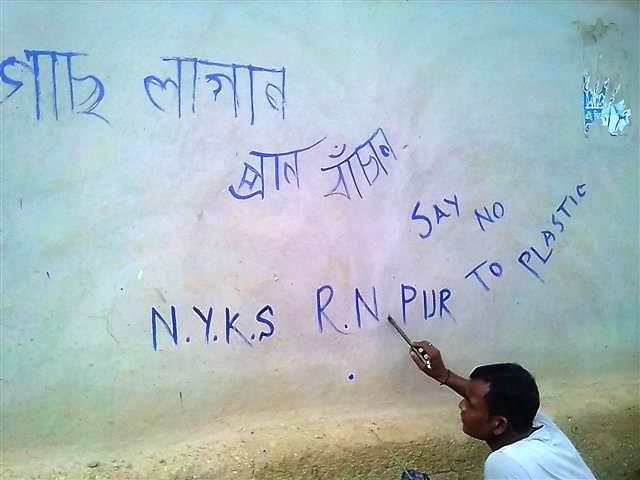 গাছ লাগান
প্রান বাঁচান
SAY NO
TO PLASTIC
N.Y.K.S R.N PUR